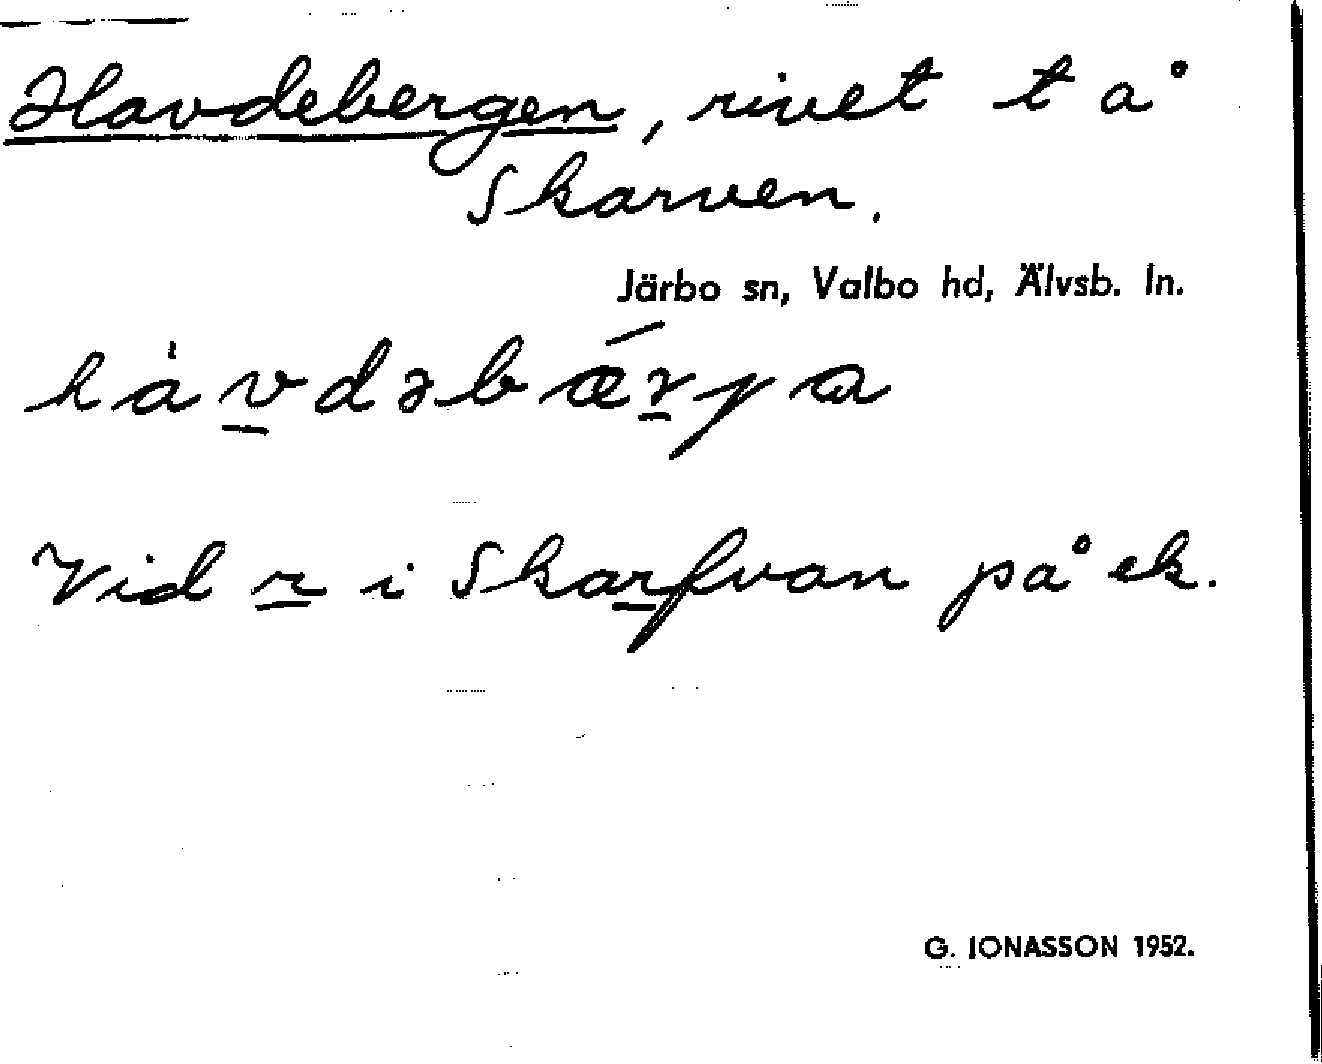 Havdebergen, rivet t å
Skarven.
Järbo sn, Valbo hd, Älvsb. ln.
hàvdəbǽrja
Vid r i Skarfvan på ek.
G. IONASSON 1952.